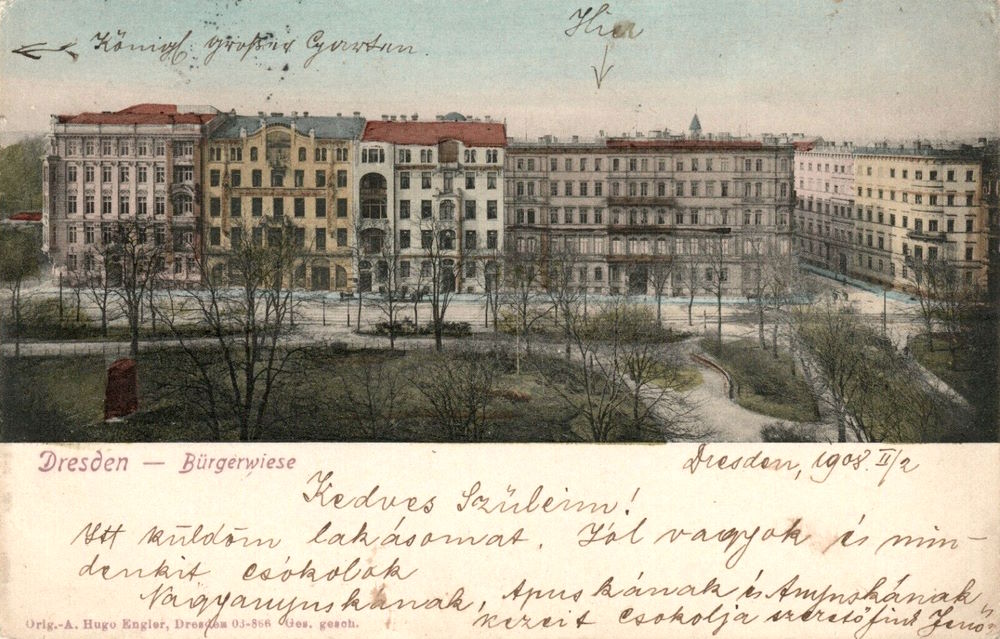 Königl großer Garten
Hier
Dresden — Bürgerwiese
Dresden, 1908 II/2
Kedves Szüleim!
Itt küldöm lakásomat. Jól vagyok és min-
denkit csókolok
Nagyanyuskának, Apuskának és Anyuskának
kezeit csokolja szerető fiuk Jenő
Orig.-A. Hugo Engler, Dresden 03-866 Ges. gesch.